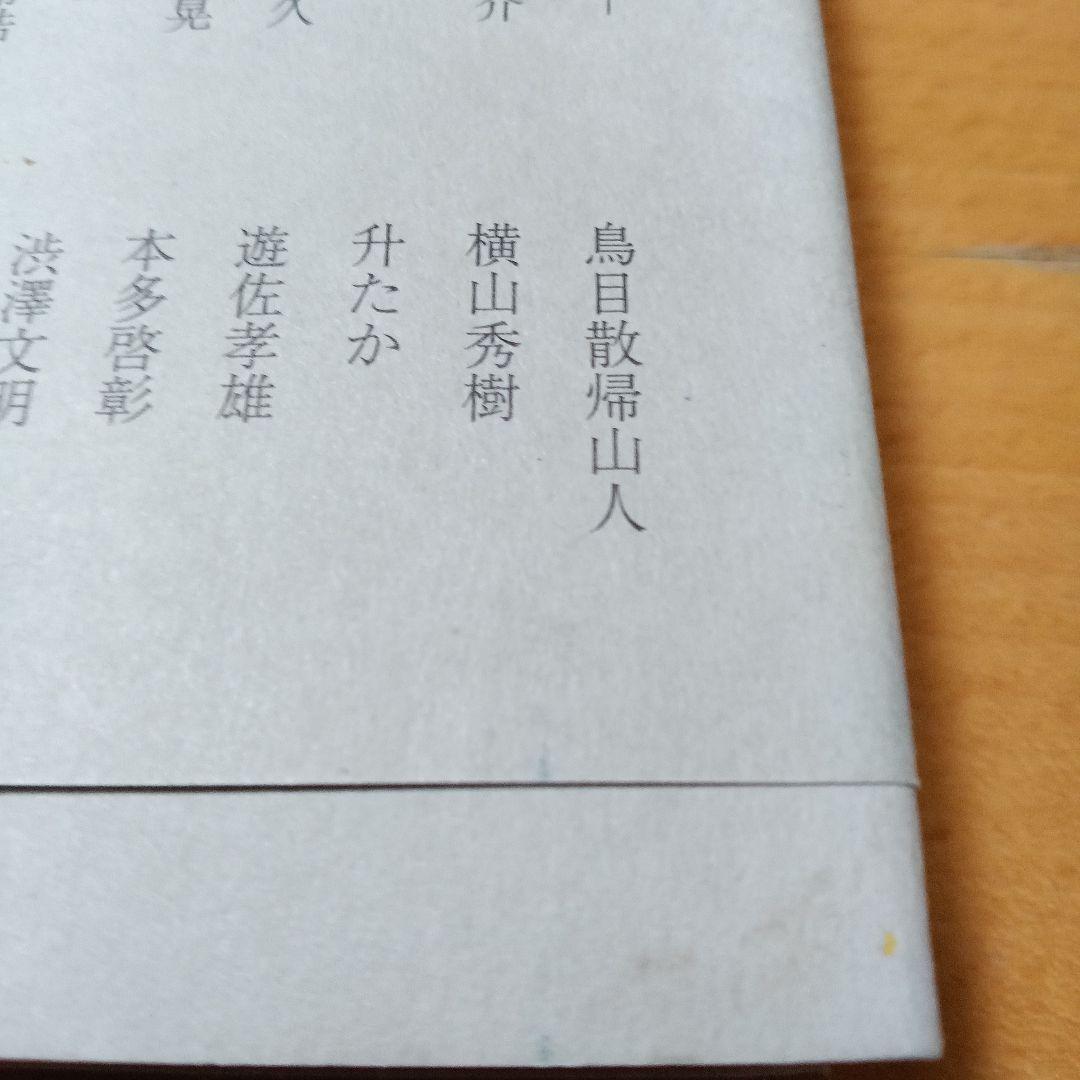 鳥目散帰山人
横山秀樹
升たか
遊佐孝雄
本多啓彰
渋澤文明